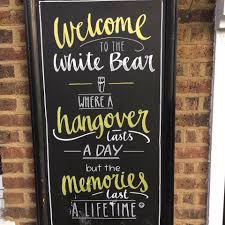 Welcome
TO THE
WHITE BEAR
WHERE A
hangover
lasts
A DAY
but the
MEMORIES
last
A LIFETIME